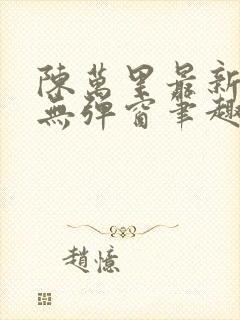 陳萬里最新
無彈窗筆趣
趙憶